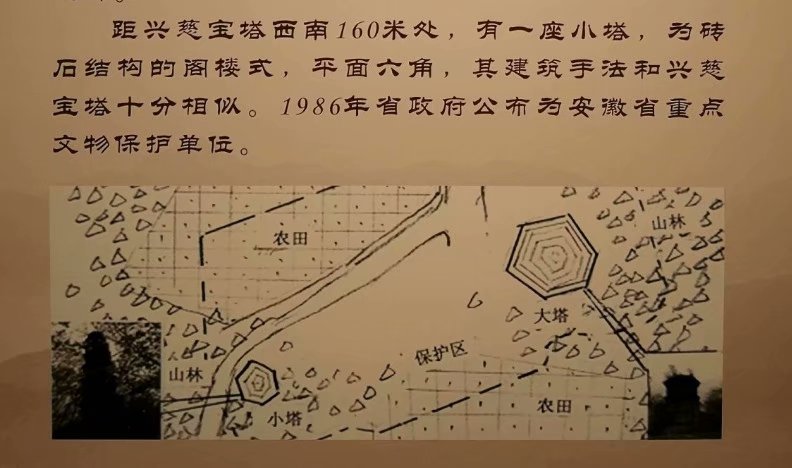 距兴慈宝塔西南160米处，有一座小塔，为砖
石结构的阁楼式，平面六角，其建筑手法和兴慈
宝塔十分相似。1986年省政府公布为安徽省重点
文物保护单位。
山林
农田
大塔
保护区
山林
农田
小塔